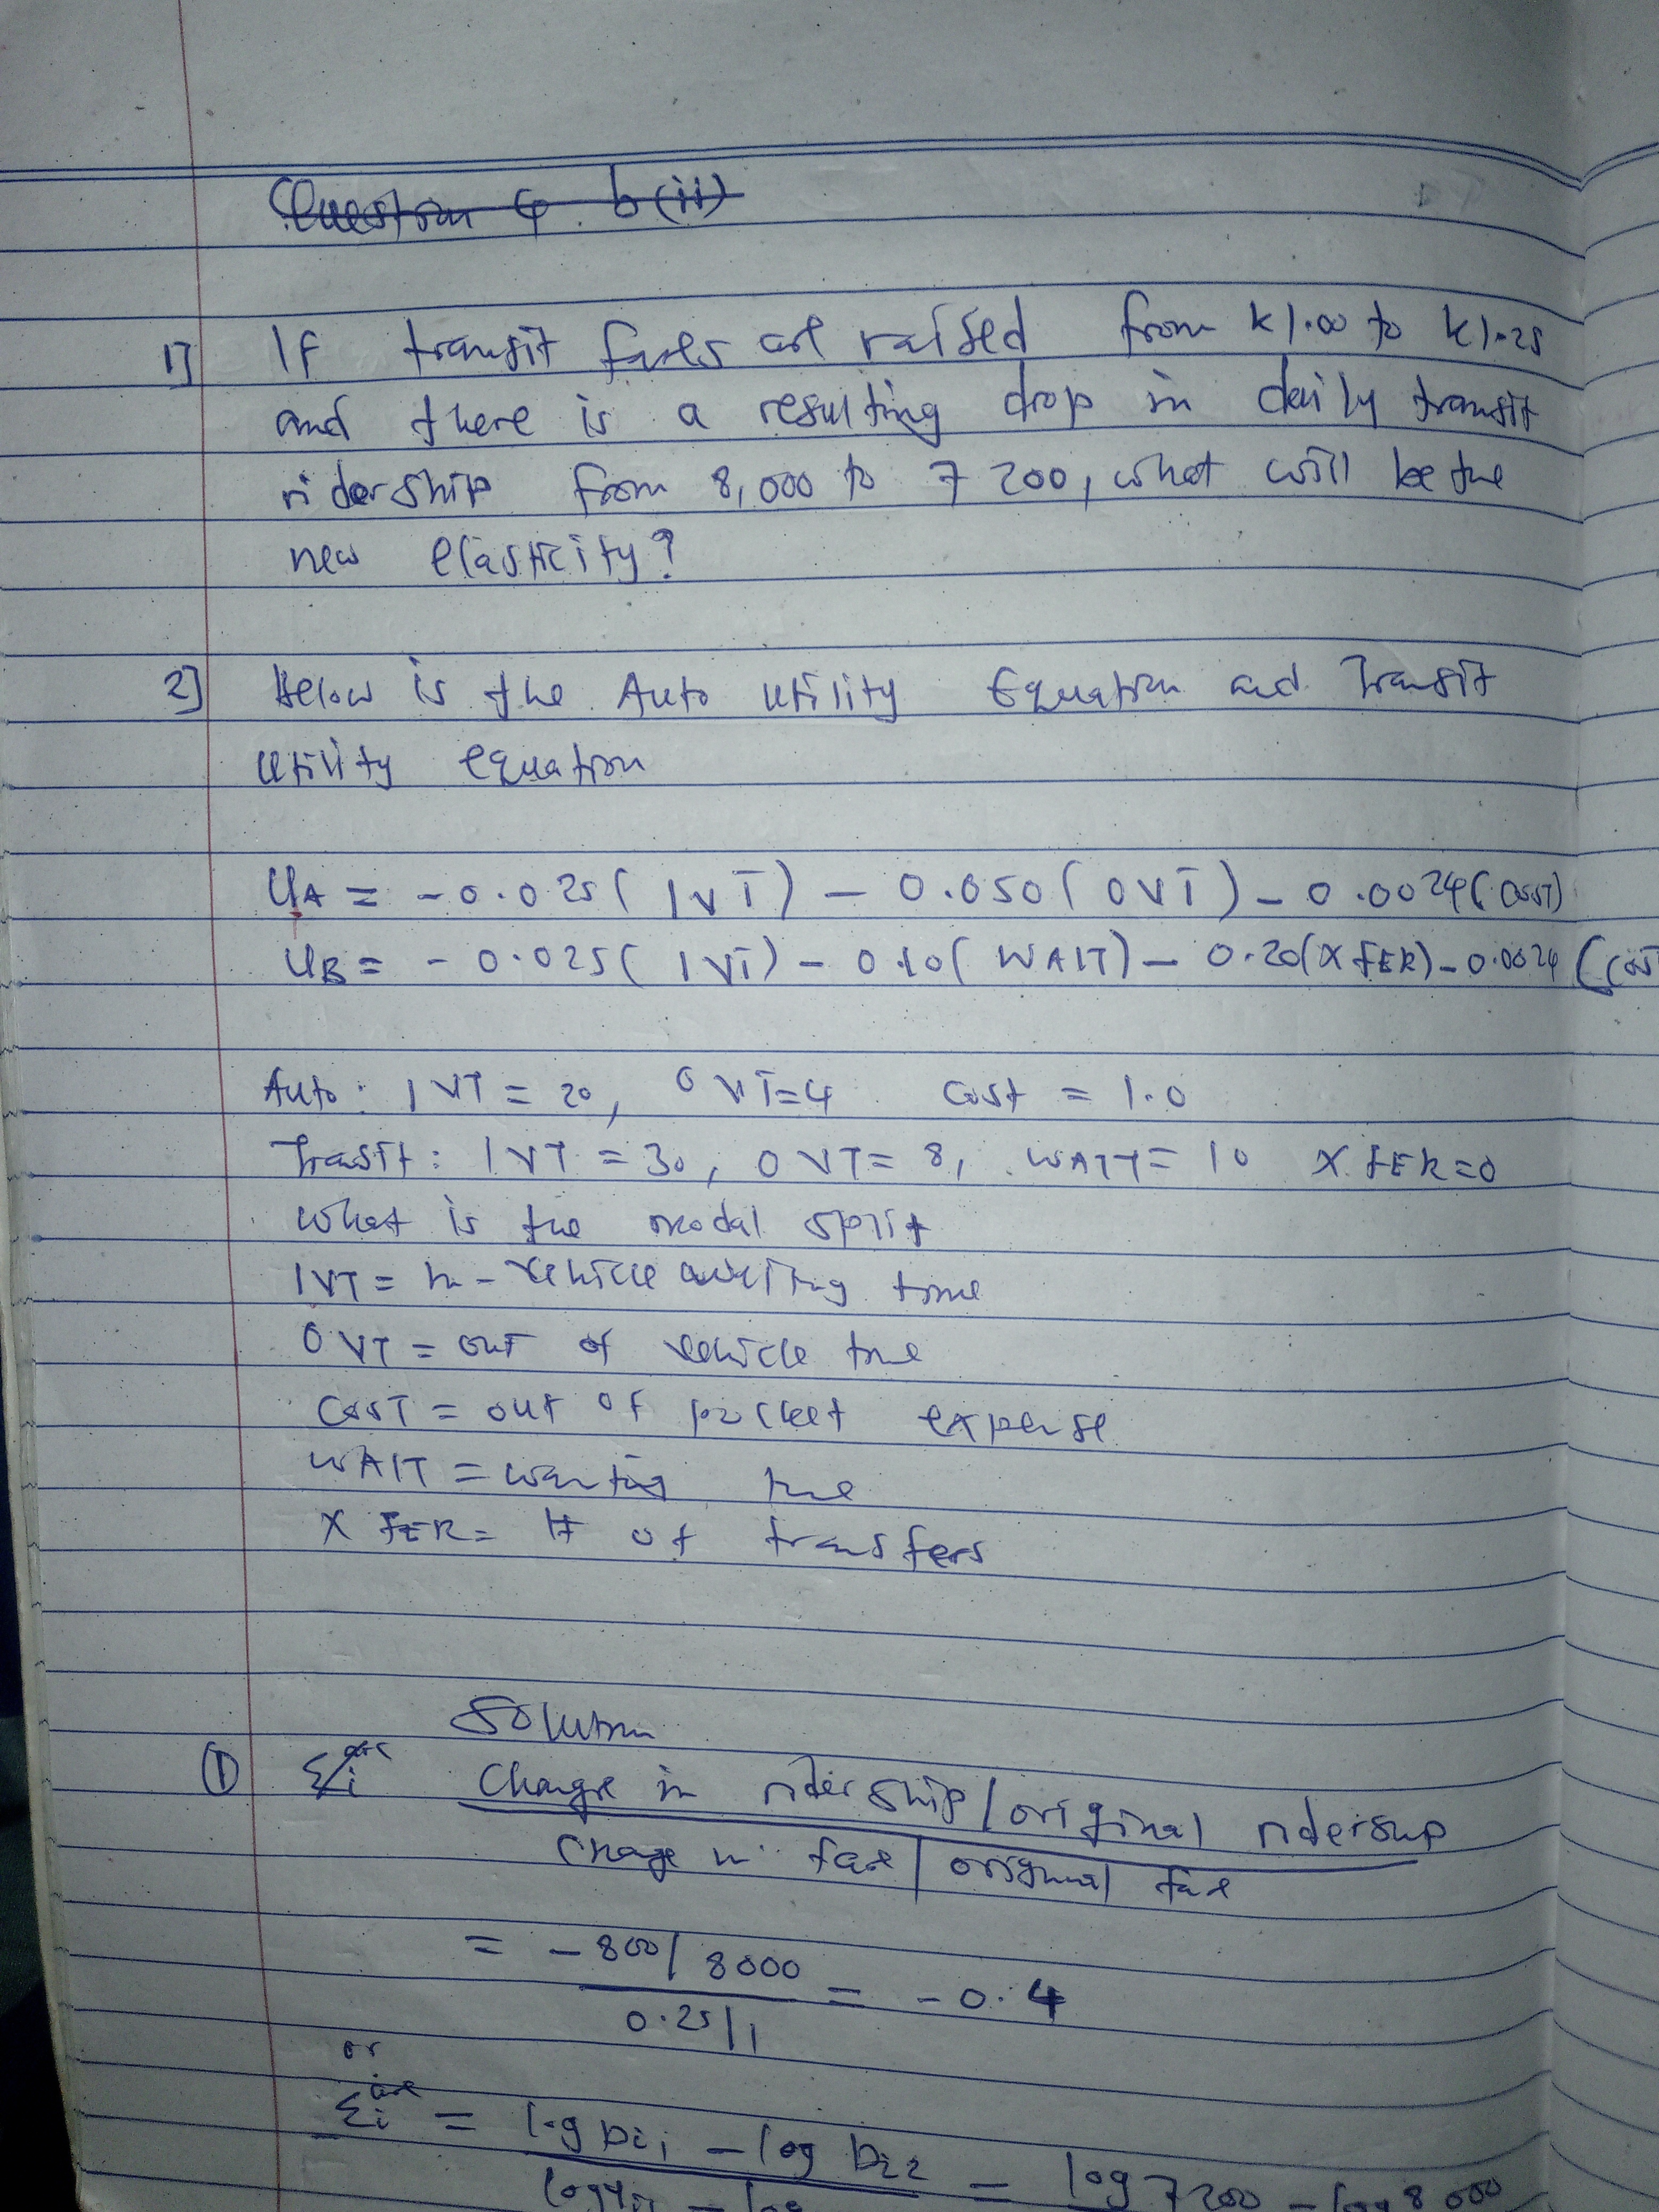 Question 4 b(ii)
1] If transit fares are raised from K1.00 to K1.25
and there is a resulting drop in daily transit
ridership from 8,000 to 7 200, what will be the
new elasticity?
2] Below is the Auto utility Equation and Transit
utility equation
UA = -0.025( IVT) - 0.050( OVT) - 0.0024( COST)
UB = -0.025( IVT) - 0.10( WAIT) - 0.20(X FER) - 0.0024 (COST
Auto: IVT = 20, OVT=4 Cost = 1.0
Transit: IVT = 30, OVT= 8, WAIT= 10 X FER=0
What is the modal split
IVT = in-vehicle time
OVT = out of vehicle time
COST = out of pocket expense
WAIT = waiting time
X FER = # of transfers
Solution
① Σi arc Change in ridership/original ridership
Change in fare/original fare
= -800/8000 = -0.4
0.25/1
or
Σi arc = log Di1 - log Di2 = log 7200 - log 8000